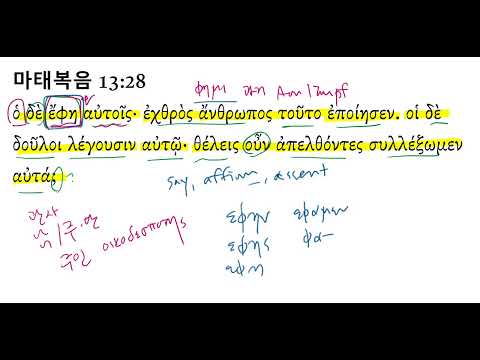 마태복음 13:28
φημι Aor/Impf
ὁ δὲ ἔφη αὐτοῖς· ἐχθρὸς ἄνθρωπος τοῦτο ἐποίησεν. οἱ δὲ
δοῦλοι λέγουσιν αὐτῷ· θέλεις οὖν ἀπελθόντες συλλέξωμεν
αὐτά;
say, affirm, assent
주인 οικοδεσποτης
εφην εφαμεν
εφης φα-
εφη